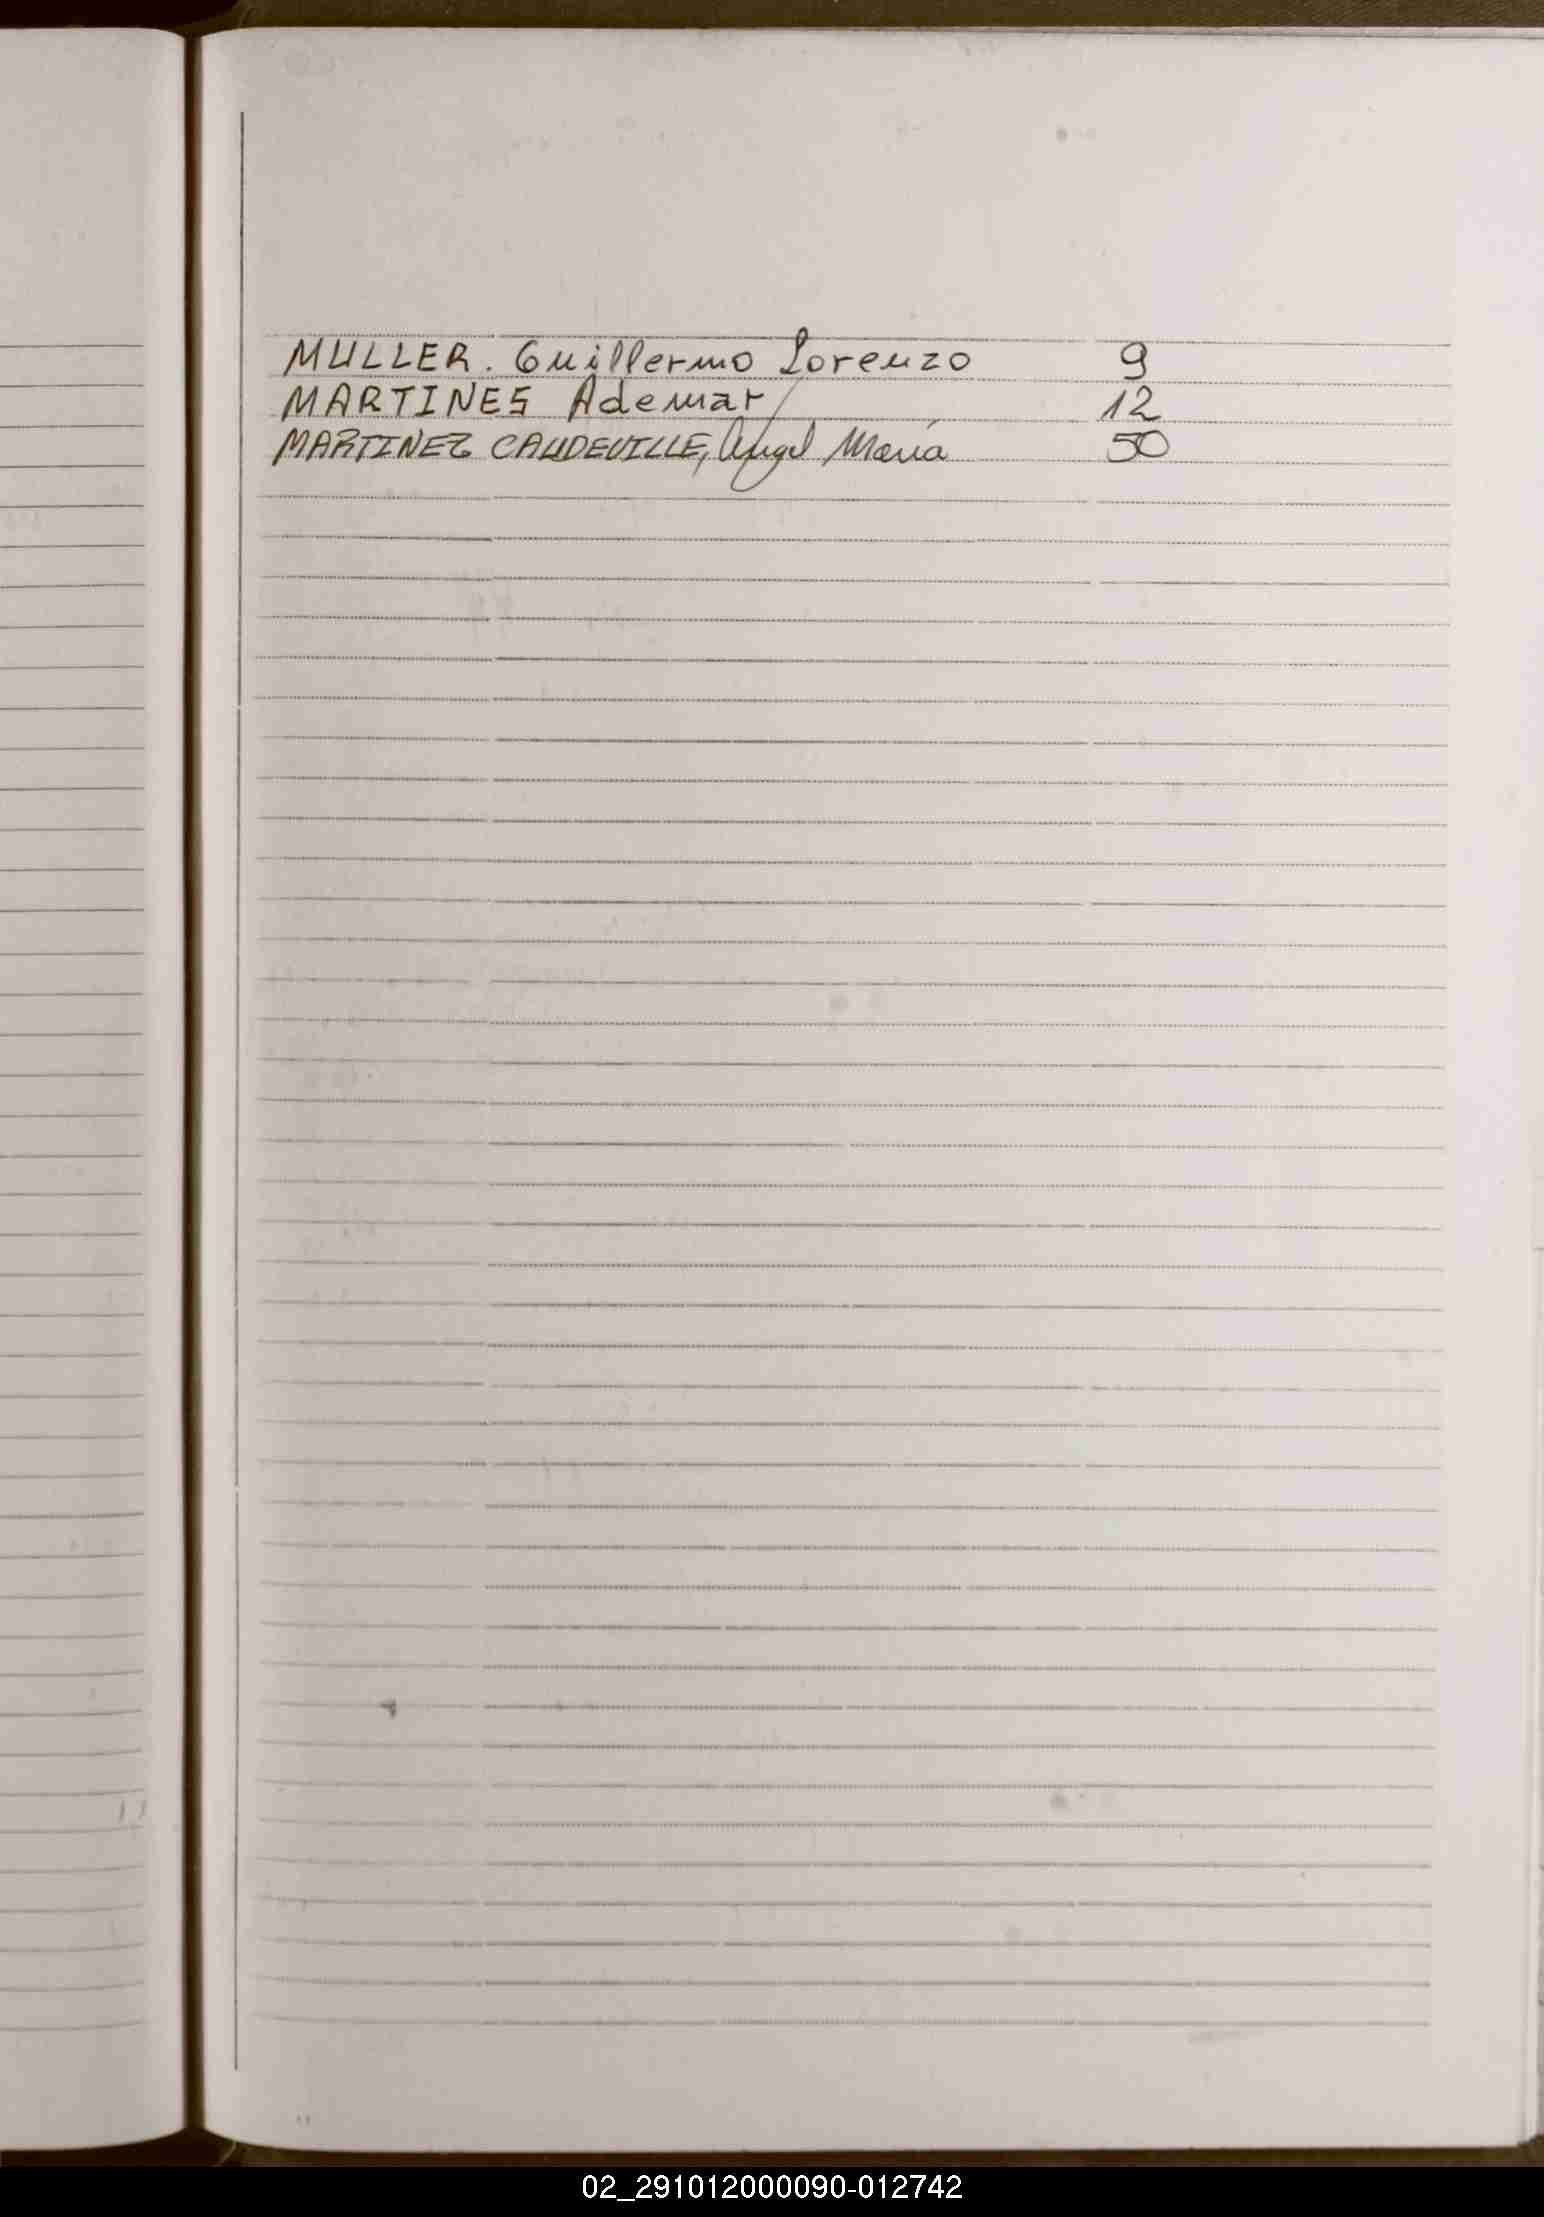 MULLER. Guillermo Lorenzo 9
MARTINES Ademar 12
MARTINEZ CAUDEVILLE, Angel María 50
02_291012000090-012742